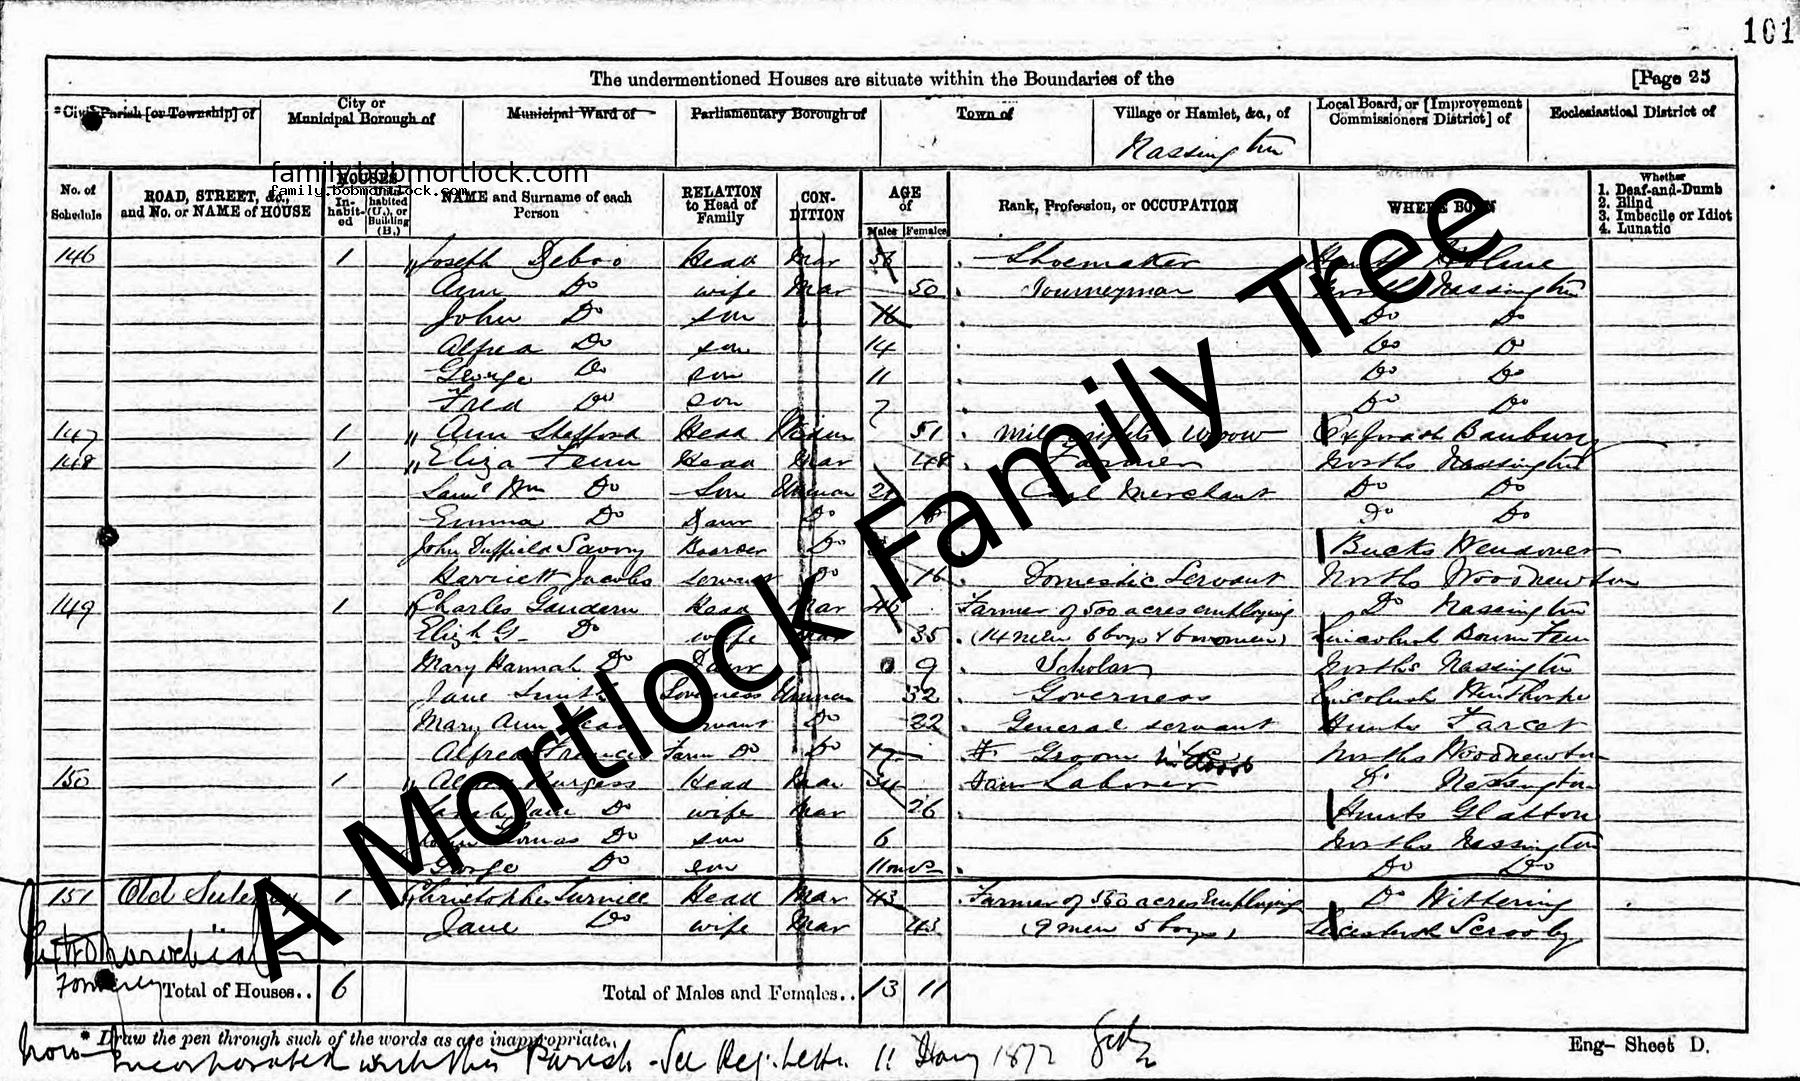 101
The undermentioned Houses are situate within the Boundaries of the [Page 25
*Civil Parish [or Township] of City or Municipal Borough of Municipal Ward of Parliamentary Borough of Town of Village or Hamlet, &c., of Local Board, or [Improvement Commissioners District] of Ecclesiastical District of
Nassington
family.bobmortlock.com
family.bobmortlock.com
No. of Schedule ROAD, STREET, &c., and No. or NAME of HOUSE HOUSES Inhabited Uninhabited (U.), or Building (B.) NAME and Surname of each Person RELATION to Head of Family CONDITION AGE of Males Females Rank, Profession, or OCCUPATION WHERE BORN Whether 1. Deaf-and-Dumb 2. Blind 3. Imbecile or Idiot 4. Lunatic
146 1 Joseph Head Mar Shoemaker Holme
Ann Do wife Mar 50 Journeyman Nassington
John Do son 16 Do Do
Alfred Do son 14 Do Do
George Do son 11 Do Do
Fred Do son 7 Do Do
147 1 Ann Stafford Head Widow 51 Banbury
148 1 Eliza Fenn Head Mar 48 Farmer Norths Nassington
Saml Wm Do Son Unmar 21 Coal Merchant Do Do
Emma Do Daur Do Do Do
John Duffield Savory Boarder Do Bucks Wendover
Harriett Jacobs servant Do 16 Domestic Servant Norths Woodnewton
149 1 Charles Gaudern Head Mar 46 Farmer of 500 acres employing Do Nassington
Elizh G. Do wife Mar 35 (14 men 6 boys & 6 women) Lincolnsh Bourn Fen
Mary Hannah Do Daur 9 Scholar Norths Nassington
Jane Smith Governess Unmar 32 Governess Lincolnsh
Mary Ann servant Do 22 General servant Hunts Farcet
Alfred Francis Farm Do Do 17 Groom Norths Woodnewton
150 1 Burgess Head Mar 34 Farm Laborer Do Nassington
Sarah Jane Do wife Mar 26 Hunts Glatton
Thomas Do son 6 Norths Nassington
George Do son 11 mos Do Do
151 Old Sulehay 1 Christopher Turnill Head Mar 43 Farmer of 560 acres Employing Do Wittering
Jane Do wife Mar 43 (9 men 5 boys)
Formerly
Total of Houses.. 6 Total of Males and Females.. 13 11
* Draw the pen through such of the words as are inappropriate. Eng- Sheet D.
now incorporated with this Parish - See Reg. Letter 11 Jany 1872
A Mortlock Family Tree